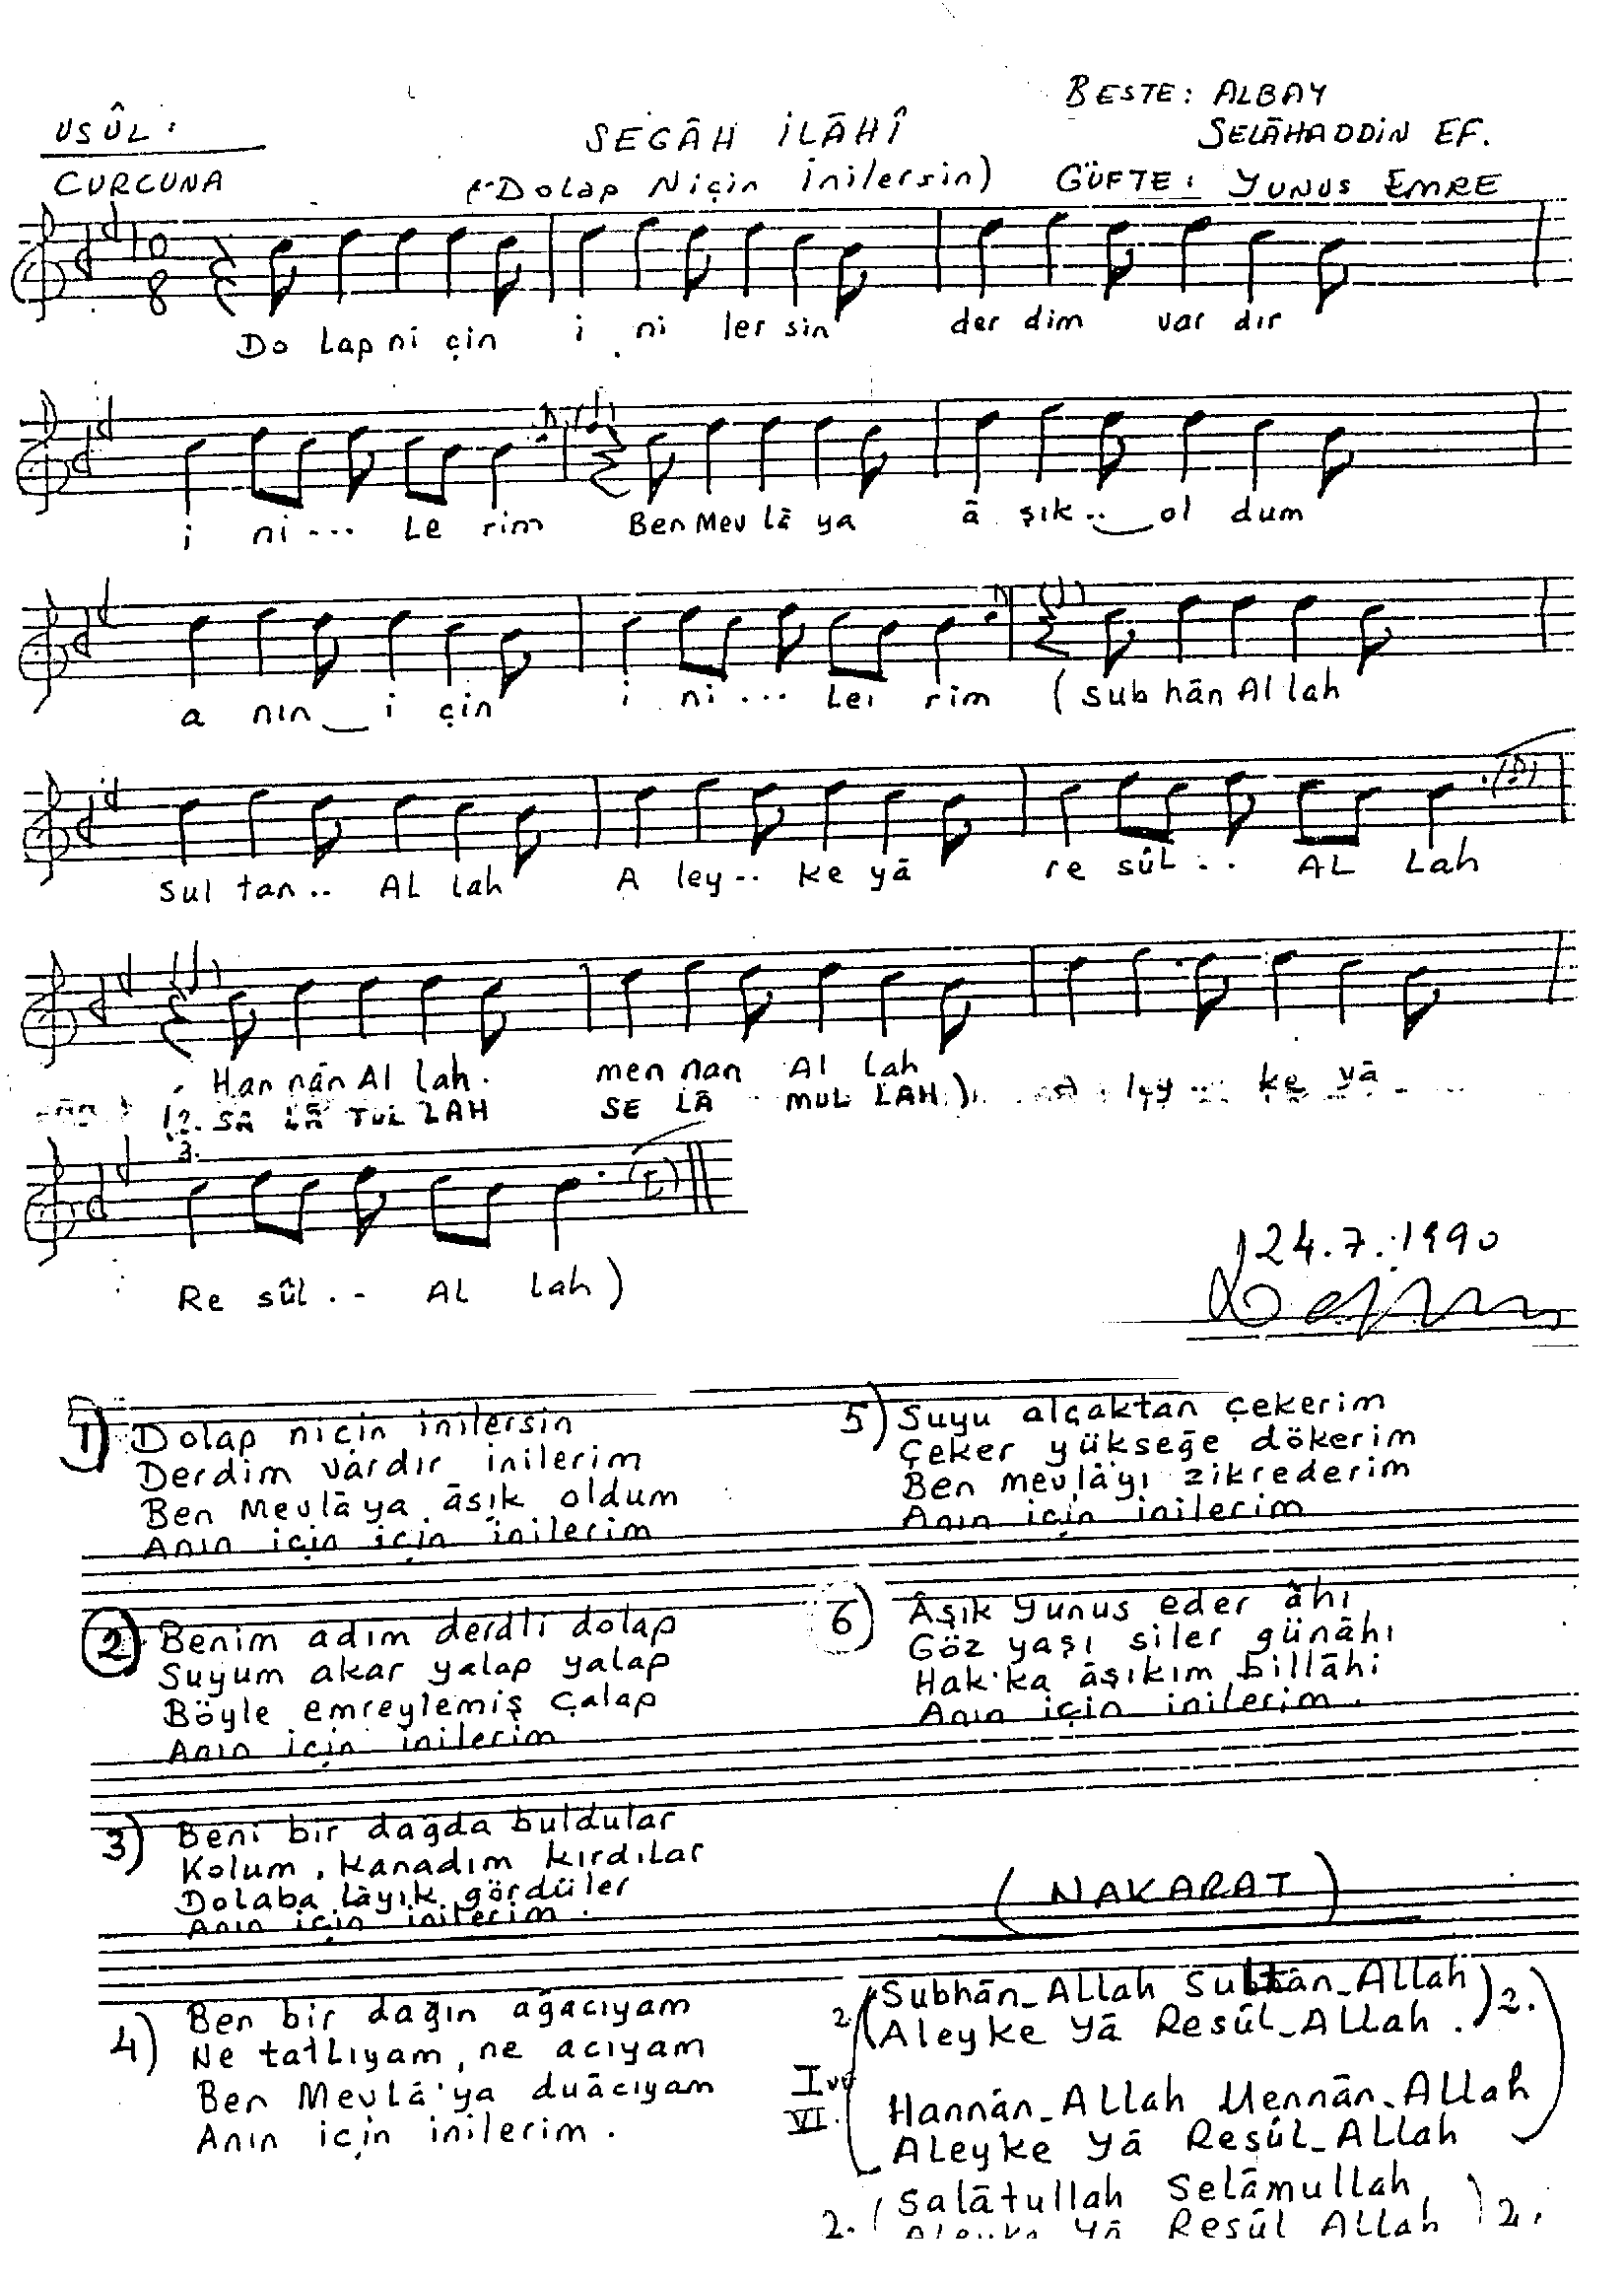 USÛL:
CURCUNA
SEGÂH İLÂHÎ
(Dolap Niçin İnilersin)
BESTE: ALBAY
SELÂHADDİN EF.
GÜFTE: YUNUS EMRE
10
8
Do Lap ni çin i ni ler sin der dim var dır
i ni... Le rim Ben Mev lâ ya â şık.. ol dum
a nın i çin i ni... Le rim (sub hân Al lah
Sul tan.. AL lah A ley.. ke yâ re sûl.. AL Lah
Han nân Al lah. men nan Al lah A ley... ke yâ
2. SA LÂ TUL LAH SE LÂ MUL LAH)
3.
Re sûl.. AL lah)
24.7.1990
1) Dolap niçin inilersin
Derdim vardır inilerim
Ben Mevlâya âşık oldum
Anın için için inilerim
2) Benim adım derdli dolap
Suyum akar yalap yalap
Böyle emreylemiş Çalap
Anın için inilerim
3) Beni bir dağda buldular
Kolum, kanadım kırdılar
Dolaba lâyık gördüler
Anın için inilerim.
4) Ben bir dağın ağacıyam
Ne tatlıyam, ne acıyam
Ben Mevlâ'ya duâcıyam
Anın için inilerim.
5) Suyu alçaktan çekerim
Çeker yükseğe dökerim
Ben mevlâyı zikrederim
Anın için inilerim
6) Âşık Yunus eder âhı
Göz yaşı siler günâhı
Hak'ka âşıkım billâhi
Anın için inilerim.
(NAKARAT)
2. (Subhân_Allah Sultan_Allah
Aleyke Yâ Resûl_Allah.) 2.
I ve
VI.
Hannân_Allah Mennân_Allah
Aleyke Yâ Resûl_Allah
2. (Salâtullah Selâmullah
Aleyke Yâ Resûl Allah) 2.